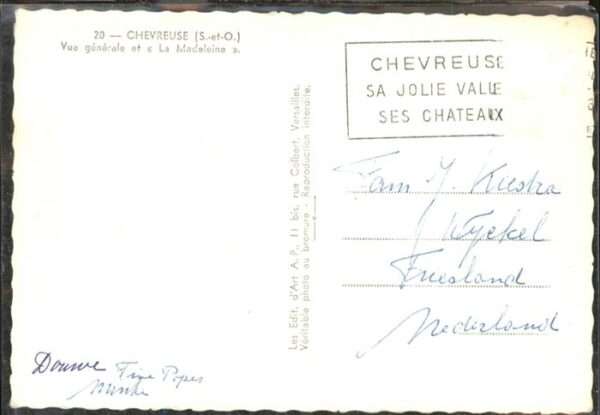 20 — CHEVREUSE (S.-et-O.)
Vue générale et « La Madeleine ».
CHEVREUSE
SA JOLIE VALLE
SES CHATEAUX
Les Edit. d'Art A. P., 11 bis, rue Colbert, Versailles.
Véritable photo au bromure - Reproduction interdite.
Fam. Y. Kuestra
Wyckel
Friesland
Nederland
Douwe Fine Popes